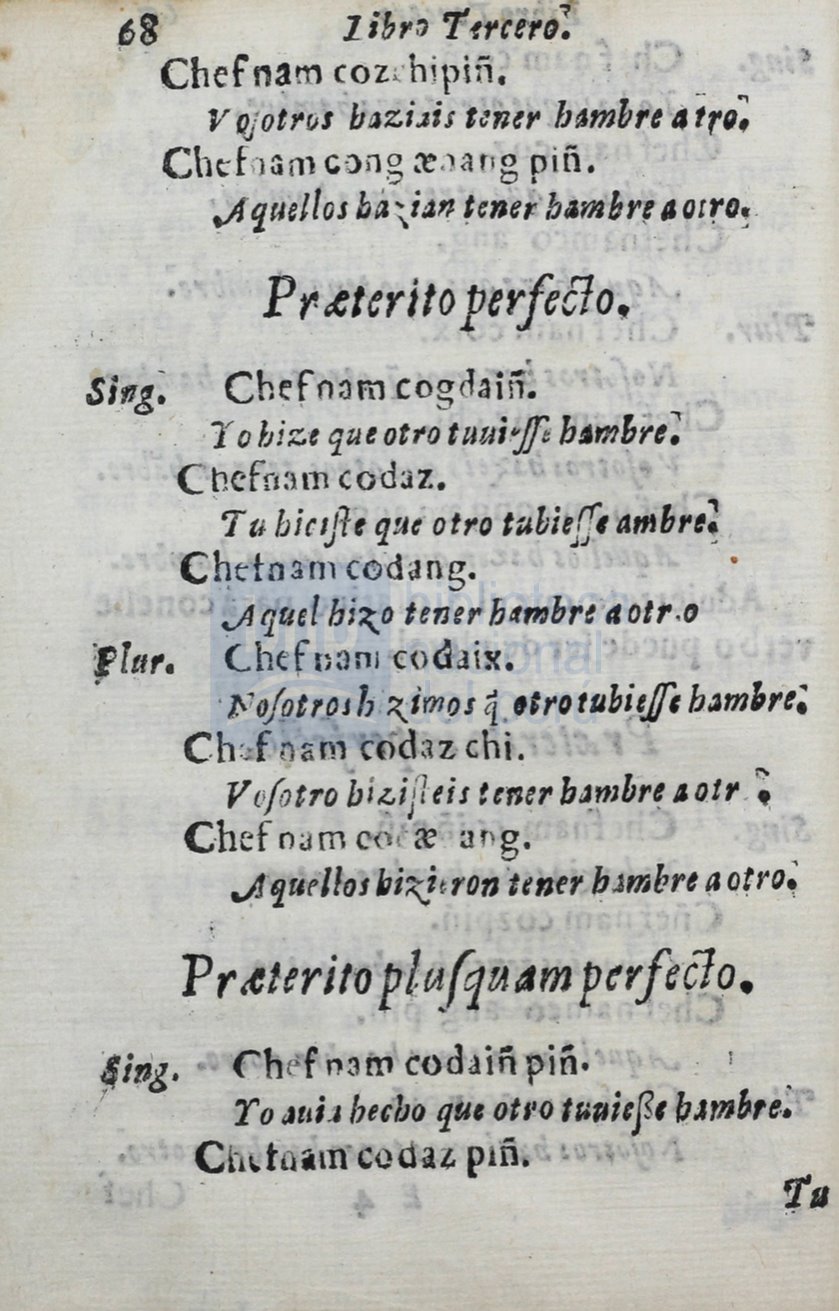 68 Libro Tercero.
Chef nam coz chipiñ.
Vosotros haziais tener hambre a tro.
Chefnam cong æ nang piñ.
Aquellos hazian tener hambre a otro.
Præterito perfecto.
Sing. Chef nam cogdaiñ.
Yo hize que otro tuuiesse hambre.
Chefnam codaz.
Tu hiciste que otro tubiesse ambre.
Chefnam codang.
Aquel hizo tener hambre a otr.o
Plur. Chef nam codaix.
Nosotros h zimos q̃ otro tubiesse hambre.
Chef nam codaz chi.
Vosotro hizisteis tener hambre a otr .
Chef nam co æ ang.
Aquellos hizieron tener hambre a otro.
Præterito plusquam perfecto.
Sing. Chef nam codaiñ piñ.
Yo auia hecho que otro tuuieße hambre.
Chefnam codaz piñ.
Tu